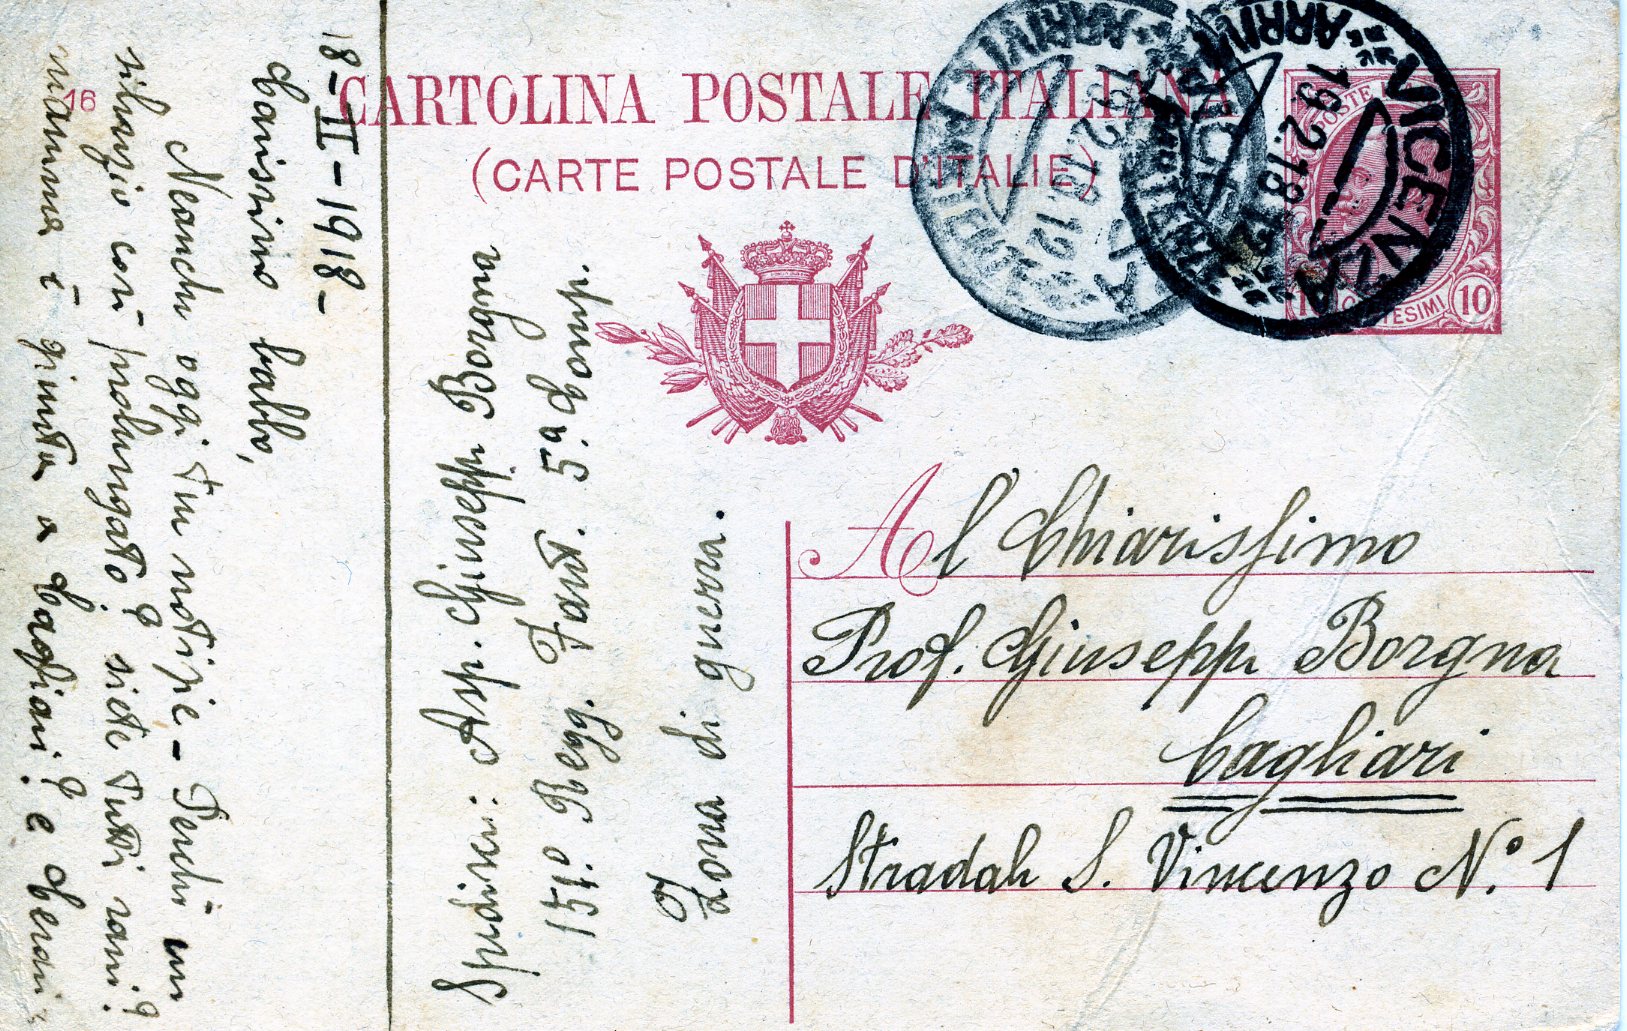 CARTOLINA POSTALE ITALIANA
(CARTE POSTALE D'ITALIE)
16
VICENZA
ARRIVI
19.2.18.12
VICENZA
ARRIVI
19.2.18.12
POSTE
CENTESIMI 10
18-II-1918-
Carissimo babbo,
Neanche oggi tue notizie - Perchè un
silenzio così prolungato? siete tutti sani?
mamma è giunta a Cagliari? e
Spedisce: Asp. Giuseppe Borgna
151.o Regg. Fant. 5.a Comp.
Zona di guerra.
Al Chiarissimo
Prof. Giuseppe Borgna
Cagliari
Stradale S. Vincenzo N.o 1